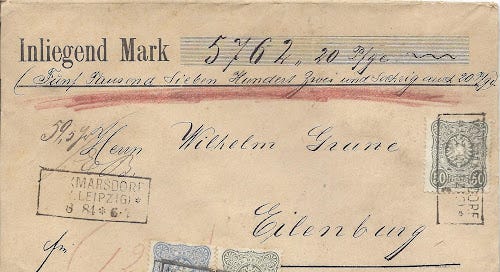 Inliegend Mark 5762, 20 Pfge
( Fünf Tausend Sieben Hundert Zwei und Sechzig auch 20 Pfge
Herrn Wilhelm Grune
(MARSDORF
LEIPZIG) *
8 84 * 6-
50 50
Eilenburg